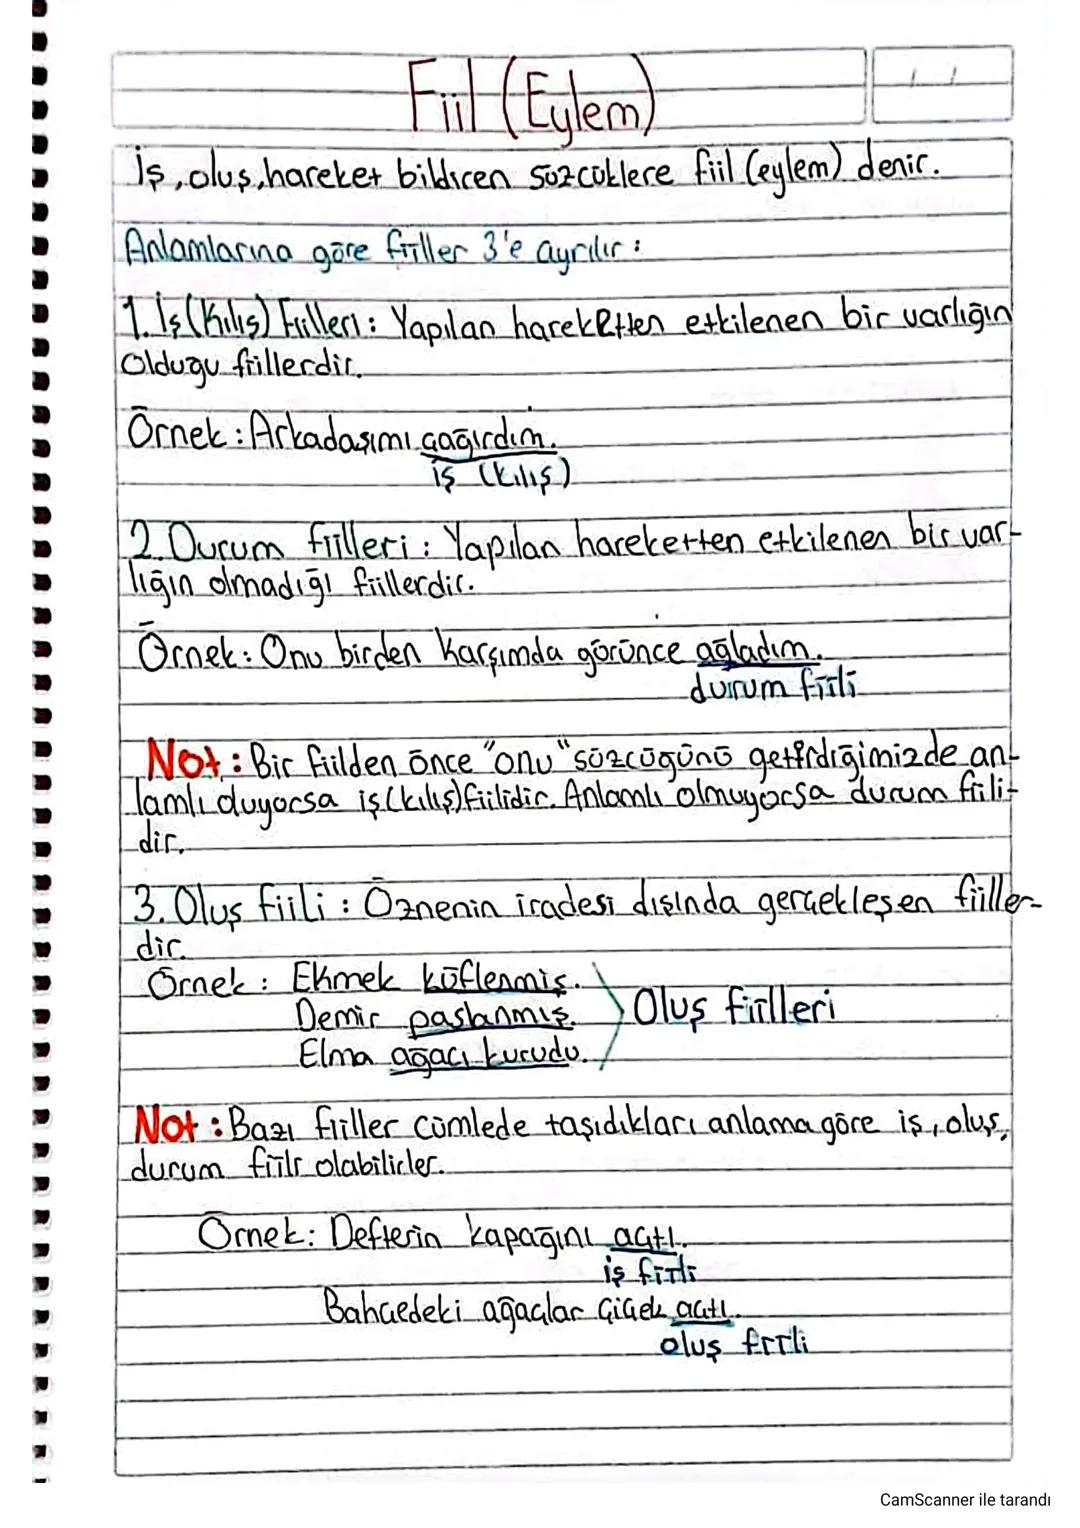 Fiil (Eylem)
İş, oluş, hareket bildiren sözcüklere fiil (eylem) denir.
Anlamlarına göre fiiller 3'e ayrılır :
1. İş (Kılış) Fiilleri : Yapılan hareketten etkilenen bir varlığın
olduğu fiillerdir.
Örnek : Arkadaşımı çağırdım.
iş (kılış)
2. Durum fiilleri : Yapılan hareketten etkilenen bir var-
lığın olmadığı fiillerdir.
Örnek : Onu birden karşımda görünce ağladım.
durum fiili
Not : Bir fiilden önce "onu" sözcüğünü getirdiğimizde an-
lamlı duyorsa iş (kılış) fiilidir. Anlamlı olmuyorsa durum fiili-
dir.
3. Oluş fiili : Öznenin iradesi dışında gerçekleşen fiiller-
dir.
Örnek : Ekmek küflenmiş.
Demir paslanmış.
Elma ağacı kurudu.
Oluş fiilleri
Not : Bazı fiiller cümlede taşıdıkları anlama göre iş, oluş,
durum fiili olabilirler.
Örnek : Defterin kapağını açtı.
iş fiili
Bahçedeki ağaçlar çiçek açtı.
oluş fiili
CamScanner ile tarandı